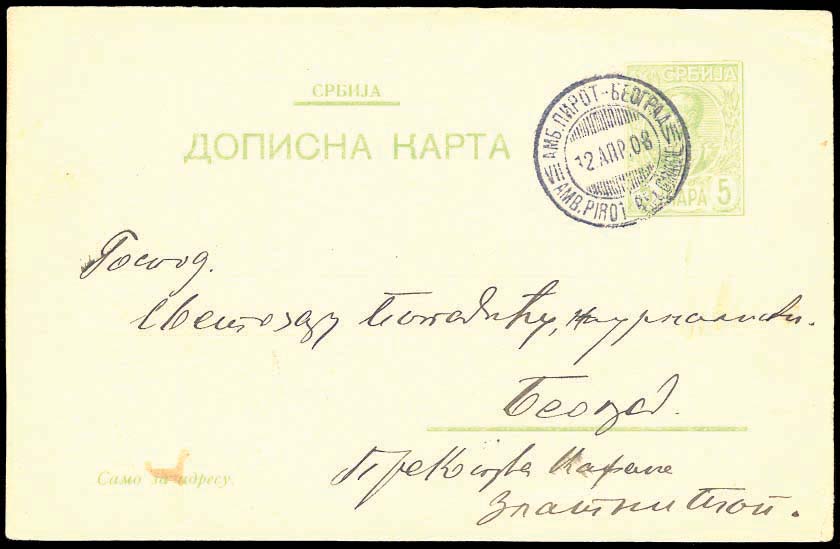 СРБИЈА
ДОПИСНА КАРТА
СРБИЈА
5 ПАРА 5
VII АМБ. ПИРОТ-БЕОГРАД VII
12 АПР. 08
AMB. PIROT
Господ.
Светозару
Београд.
Преко пута Кафане
Златни Топ.
Само за адресу.